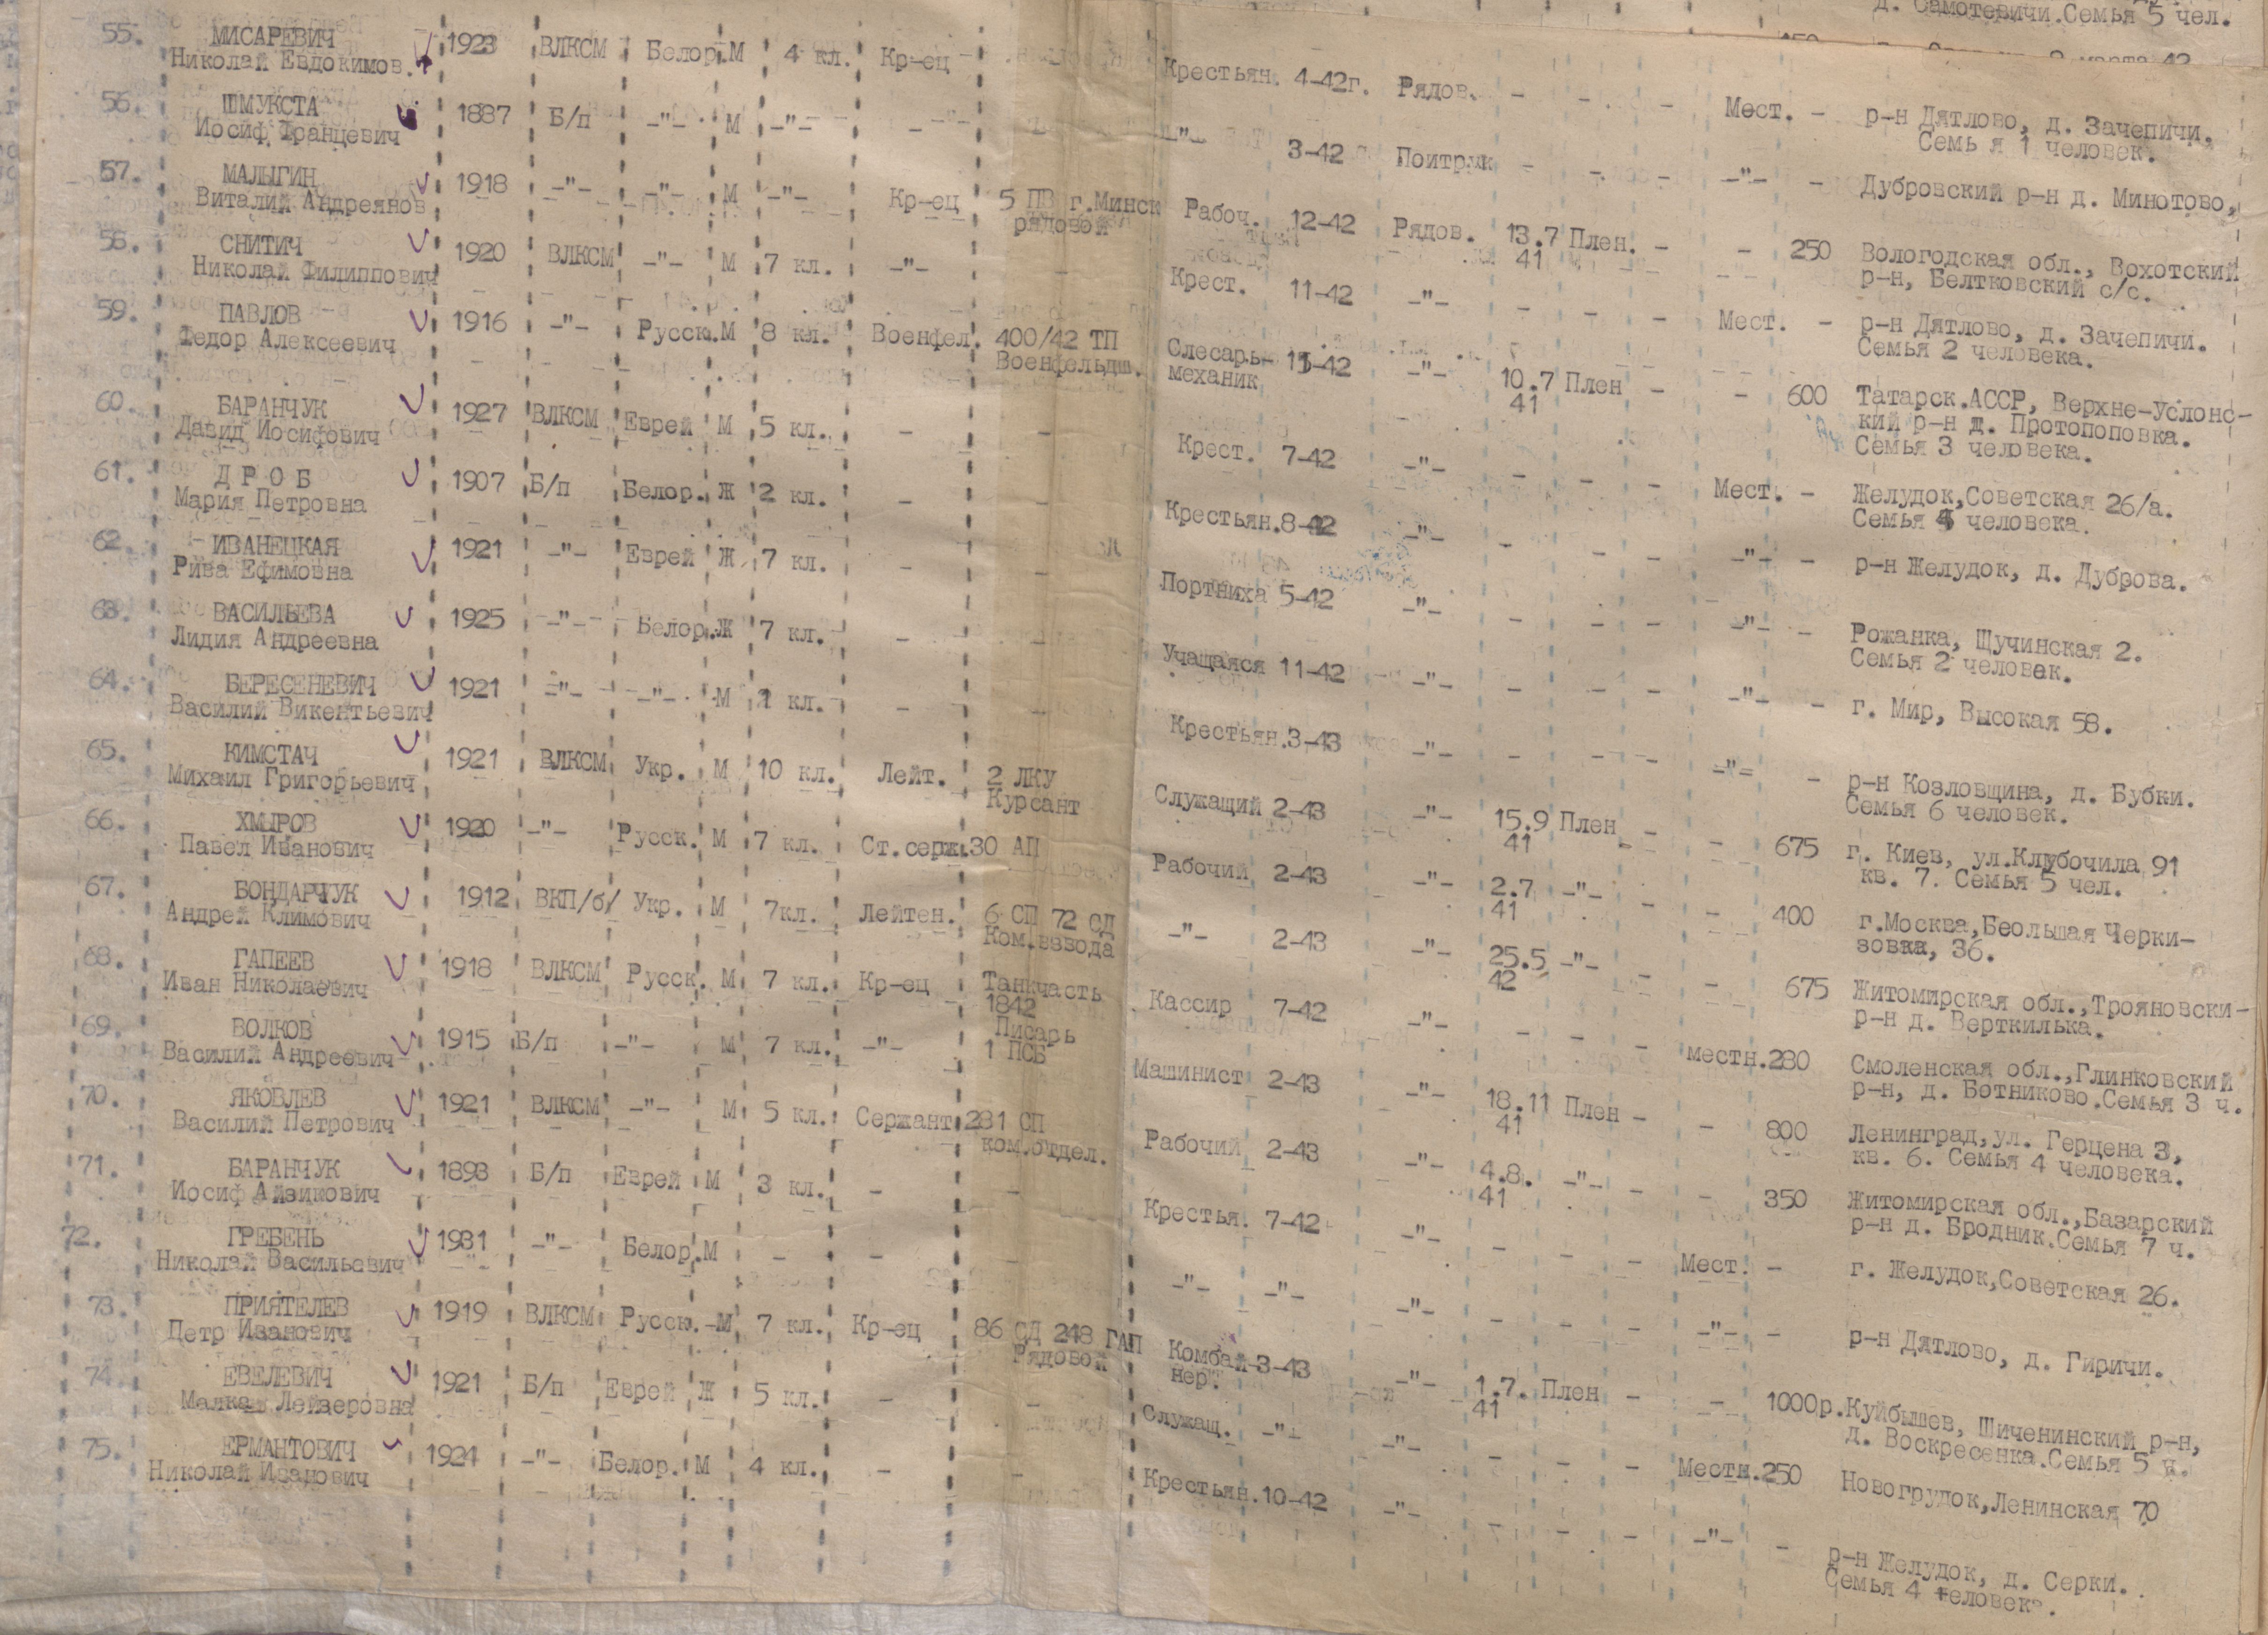 д. Самотевичи.Семья 5 чел.
55. МИСАРЕВИЧ 1923 ВЛКСМ Белор. М 4 кл. Кр-ец - Крестьян. 4-42г. Рядов. - - - Мест. - р-н Дятлово, д. Зачепичи.
Николай Евдокимов. Семь я 1 человек.
56. ШМУКСТА 1887 Б/п -"- М -"- - -"- 3-42 Поитрук - - - -"- - Дубровский р-н д. Минотово,
Иосиф Францевич
57. МАЛЫГИН 1918 -"- -"- М -"- Кр-ец 5 ПВ г.Минск Рабоч. 12-42 Рядов. 13.7 Плен. - - 250 Вологодская обл., Вохотский
Виталий Андреянов рядовой 41 р-н, Белтковский с/с.
58. СНИТИЧ 1920 ВЛКСМ -"- М 7 кл. -"- - Крест. 11-42 -"- - - - Мест. - р-н Дятлово, д. Зачепичи.
Николай Филиппович Семья 2 человека.
59. ПАВЛОВ 1916 -"- Русск. М 8 кл. Военфел. 400/42 ТП Слесарь- 11-42 -"- 10.7 Плен - - 600 Татарск.АССР, Верхне-Услонс-
Федор Алексеевич Военфельдш. механик 41 кий р-н д. Протопоповка.
Семья 3 человека.
60. БАРАНЧУК 1927 ВЛКСМ Еврей М 5 кл. - - Крест. 7-42 -"- - - - Мест. - Желудок,Советская 26/а.
Давид Иосифович Семья 4 человека.
61. Д Р О Б 1907 Б/п Белор. Ж 2 кл. - - Крестьян.8-42 -"- - - - -"- - р-н Желудок, д. Дуброва.
Мария Петровна
62. ИВАНЕЦКАЯ 1921 -"- Еврей Ж 7 кл. - - Портниха 5-42 -"- - - - -"- - Рожанка, Щучинская 2.
Рива Ефимовна Семья 2 человек.
63. ВАСИЛЬЕВА 1925 -"- Белор. Ж 7 кл. - - Учащаяся 11-42 -"- - - - -"- - г. Мир, Высокая 58.
Лидия Андреевна
64. БЕРЕСЕНЕВИЧ 1921 -"- -"- М 1 кл. - - Крестьян.3-43 -"- - - - -"- - р-н Козловщина, д. Бубки.
Василий Викентьевич Семья 6 человек.
65. КИМСТАЧ 1921 ВЛКСМ Укр. М 10 кл. Лейт. 2 ЛКУ Служащий 2-43 -"- 15.9 Плен - - 675 г. Киев, ул.Клубочила 91
Михаил Григорьевич Курсант 41 кв. 7. Семья 5 чел.
66. ХМЫРОВ 1920 -"- Русск. М 7 кл. Ст.серж. 30 АП Рабочий 2-43 -"- 2.7 -"- - - 400 г.Москва,Беольшая Черки-
Павел Иванович 41 зовка, 36.
67. БОНДАРЧУК 1912 ВКП/б/ Укр. М 7кл. Лейтен. 6 СП 72 СД -"- 2-43 -"- 25.5 -"- - - 675 Житомирская обл.,Трояновски-
Андрей Климович Ком.взвода 42 р-н д. Верткилька.
68. ГАПЕЕВ 1918 ВЛКСМ Русск. М 7 кл. Кр-ец Танкчасть Кассир 7-42 -"- - - - местн.280 Смоленская обл.,Глинковский
Иван Николаевич 1842 р-н, д. Ботниково.Семья 3 ч.
Писарь
69. ВОЛКОВ 1915 Б/п -"- М 7 кл. -"- 1 ПСБ Машинист 2-43 -"- 18.11 Плен - - 800 Ленинград,ул. Герцена 3,
Василий Андреевич 41 кв. 6. Семья 4 человека.
70. ЯКОВЛЕВ 1921 ВЛКСМ -"- М 5 кл. Сержант 281 СП Рабочий 2-43 -"- 4.8. -"- - - 350 Житомирская обл.,Базарский
Василий Петрович ком.отдел. 41 р-н д. Бродник.Семья 7 ч.
71. БАРАНЧУК 1893 Б/п Еврей М 3 кл. - - Крестья. 7-42 -"- - - - Мест. - г. Желудок,Советская 26.
Иосиф Айзикович
72. ГРЕБЕНЬ 1931 -"- Белор. М - - - -"- -"- -"- - - - -"- - р-н Дятлово, д. Гиричи.
Николай Васильевич
73. ПРИЯТЕЛЕВ 1919 ВЛКСМ Русск. М 7 кл. Кр-ец 86 СД 248 ГАП Комбай- 3-43 -"- 1.7. Плен - - 1000р. Куйбышев, Шиченинский р-н,
Петр Иванович Рядовой нер. 41 д. Воскресенка.Семья 5 ч.
74. ЕВЕЛЕВИЧ 1921 Б/п Еврей Ж 5 кл. - - Служащ. -"- -"- - - - Местн.250 Новогрудок,Ленинская 70
Малка Лейзеровна
75. ЕРМАНТОВИЧ 1924 -"- Белор. М 4 кл. - - Крестьян.10-42 -"- - - - -"- - р-н Желудок, д. Серки.
Николай Иванович Семья 4 человека.